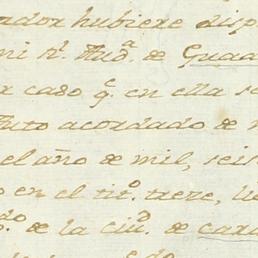 ador hubiere disp
mi Rl. Auda. de Guad
r caso qe. en ella se
Auto acordado de
el año de mil, seis
en el tito. trece, li
do. de la ciud. de cara